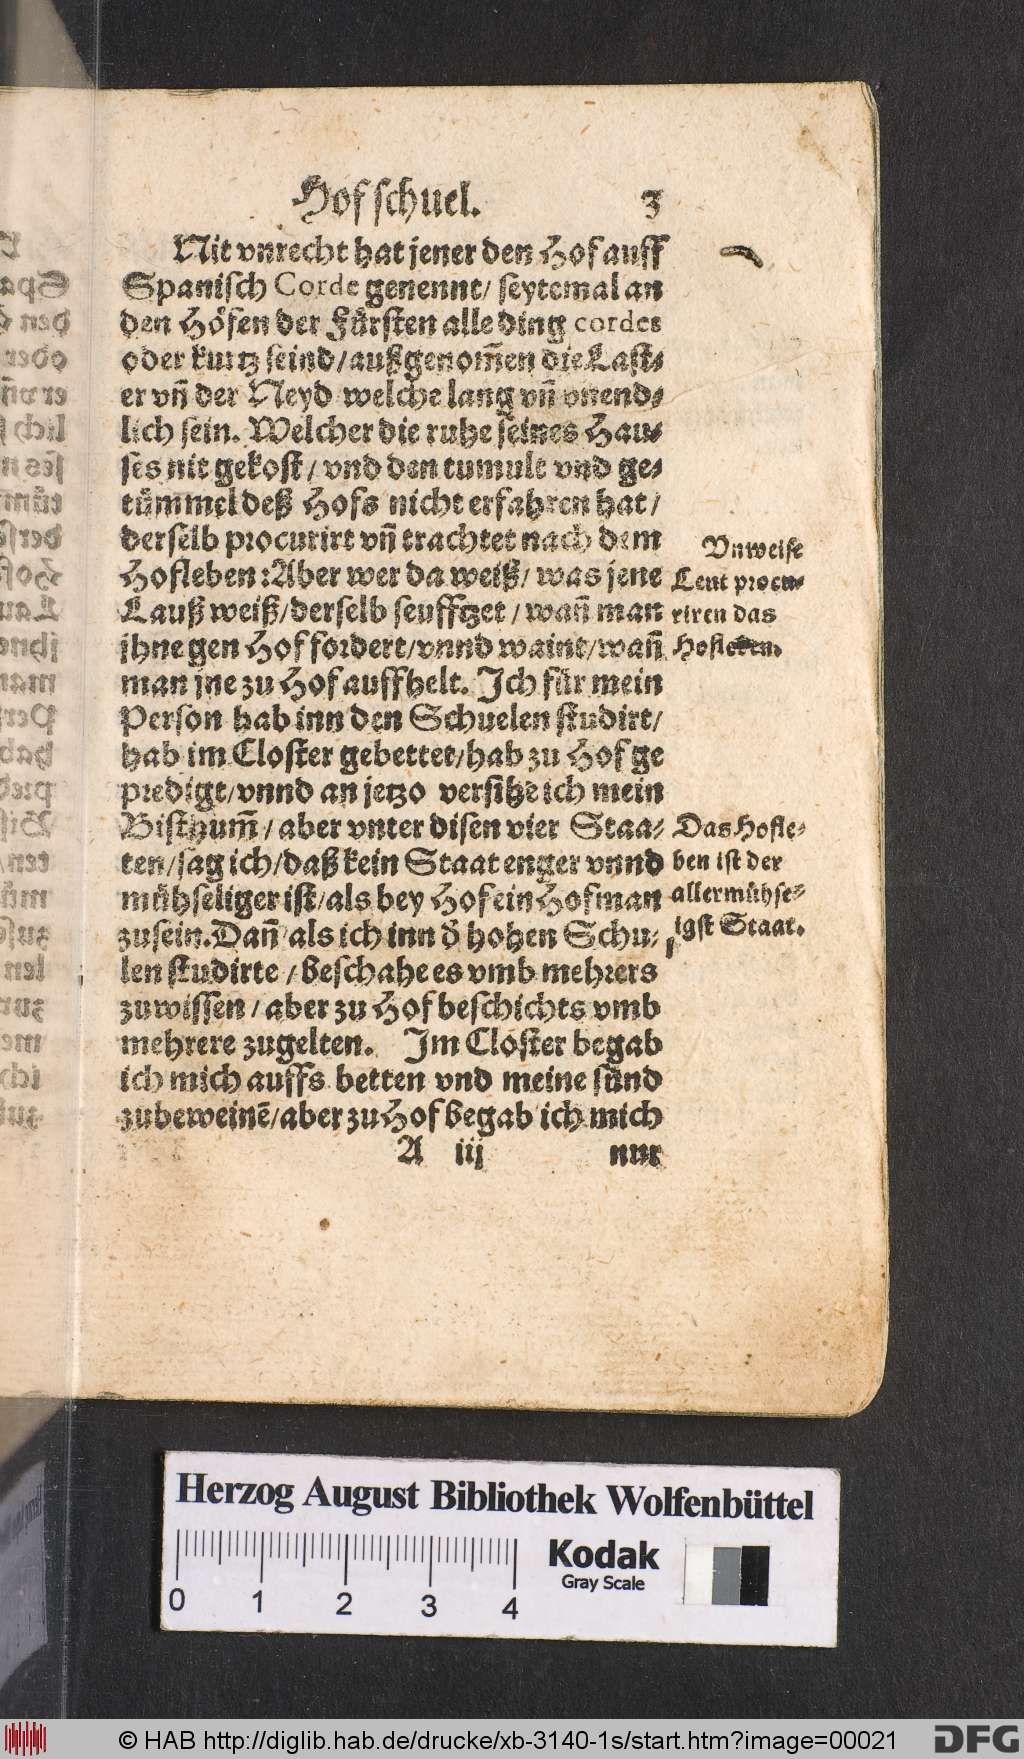 Hofschuel. 3
Nit vnrecht hat jener den Hof auff
Spanisch Corde genennt/ seytemal an
den Höfen der Fürsten alle ding cordes
oder kurtz seind/außgenom̃en die Last⸗
er vñ der Neyd welche lang vñ vnend⸗
lich sein. Welcher die ruhe seines Hau⸗
ses nit gekost/ vnd den tumult vnd ge⸗
tümmel deß Hofs nicht erfahren hat/
derselb procurirt vñ trachtet nach dem
Hofleben: Aber wer da weiß/ was jene
Lauß weiß/derselb seufftzet/ wañ man
jhne gen Hof fordert/vnnd waint/wañ
man jne zu Hof auffhelt. Ich für mein
Person hab inn den Schuelen studirt/
hab im Closter gebettet/hab zu Hof ge
predigt/vnnd an jetzo versihe ich mein
Bisthum̃/ aber vnter disen vier Staa⸗
ten/sag ich/daß kein Staat enger vnnd
mühseliger ist/als bey Hof ein Hofman
zusein. Dañ als ich inn d̕ hohen Schu⸗
len studirte/ beschahe es vmb mehrers
zuwissen/ aber zu Hof beschichts vmb
mehrere zugelten. Im Closter begab
ich mich auffs betten vnd meine sünd
zubeweinẽ/aber zu Hof begab ich mich
A iij nur
Vnweise
Leut procu⸗
riren das
Hofleben.
Das Hofle⸗
ben ist der
allermühse⸗
ligst Staat.
Herzog August Bibliothek Wolfenbüttel
0 1 2 3 4
Kodak
Gray Scale
© HAB http://diglib.hab.de/drucke/xb-3140-1s/start.htm?image=00021
DFG